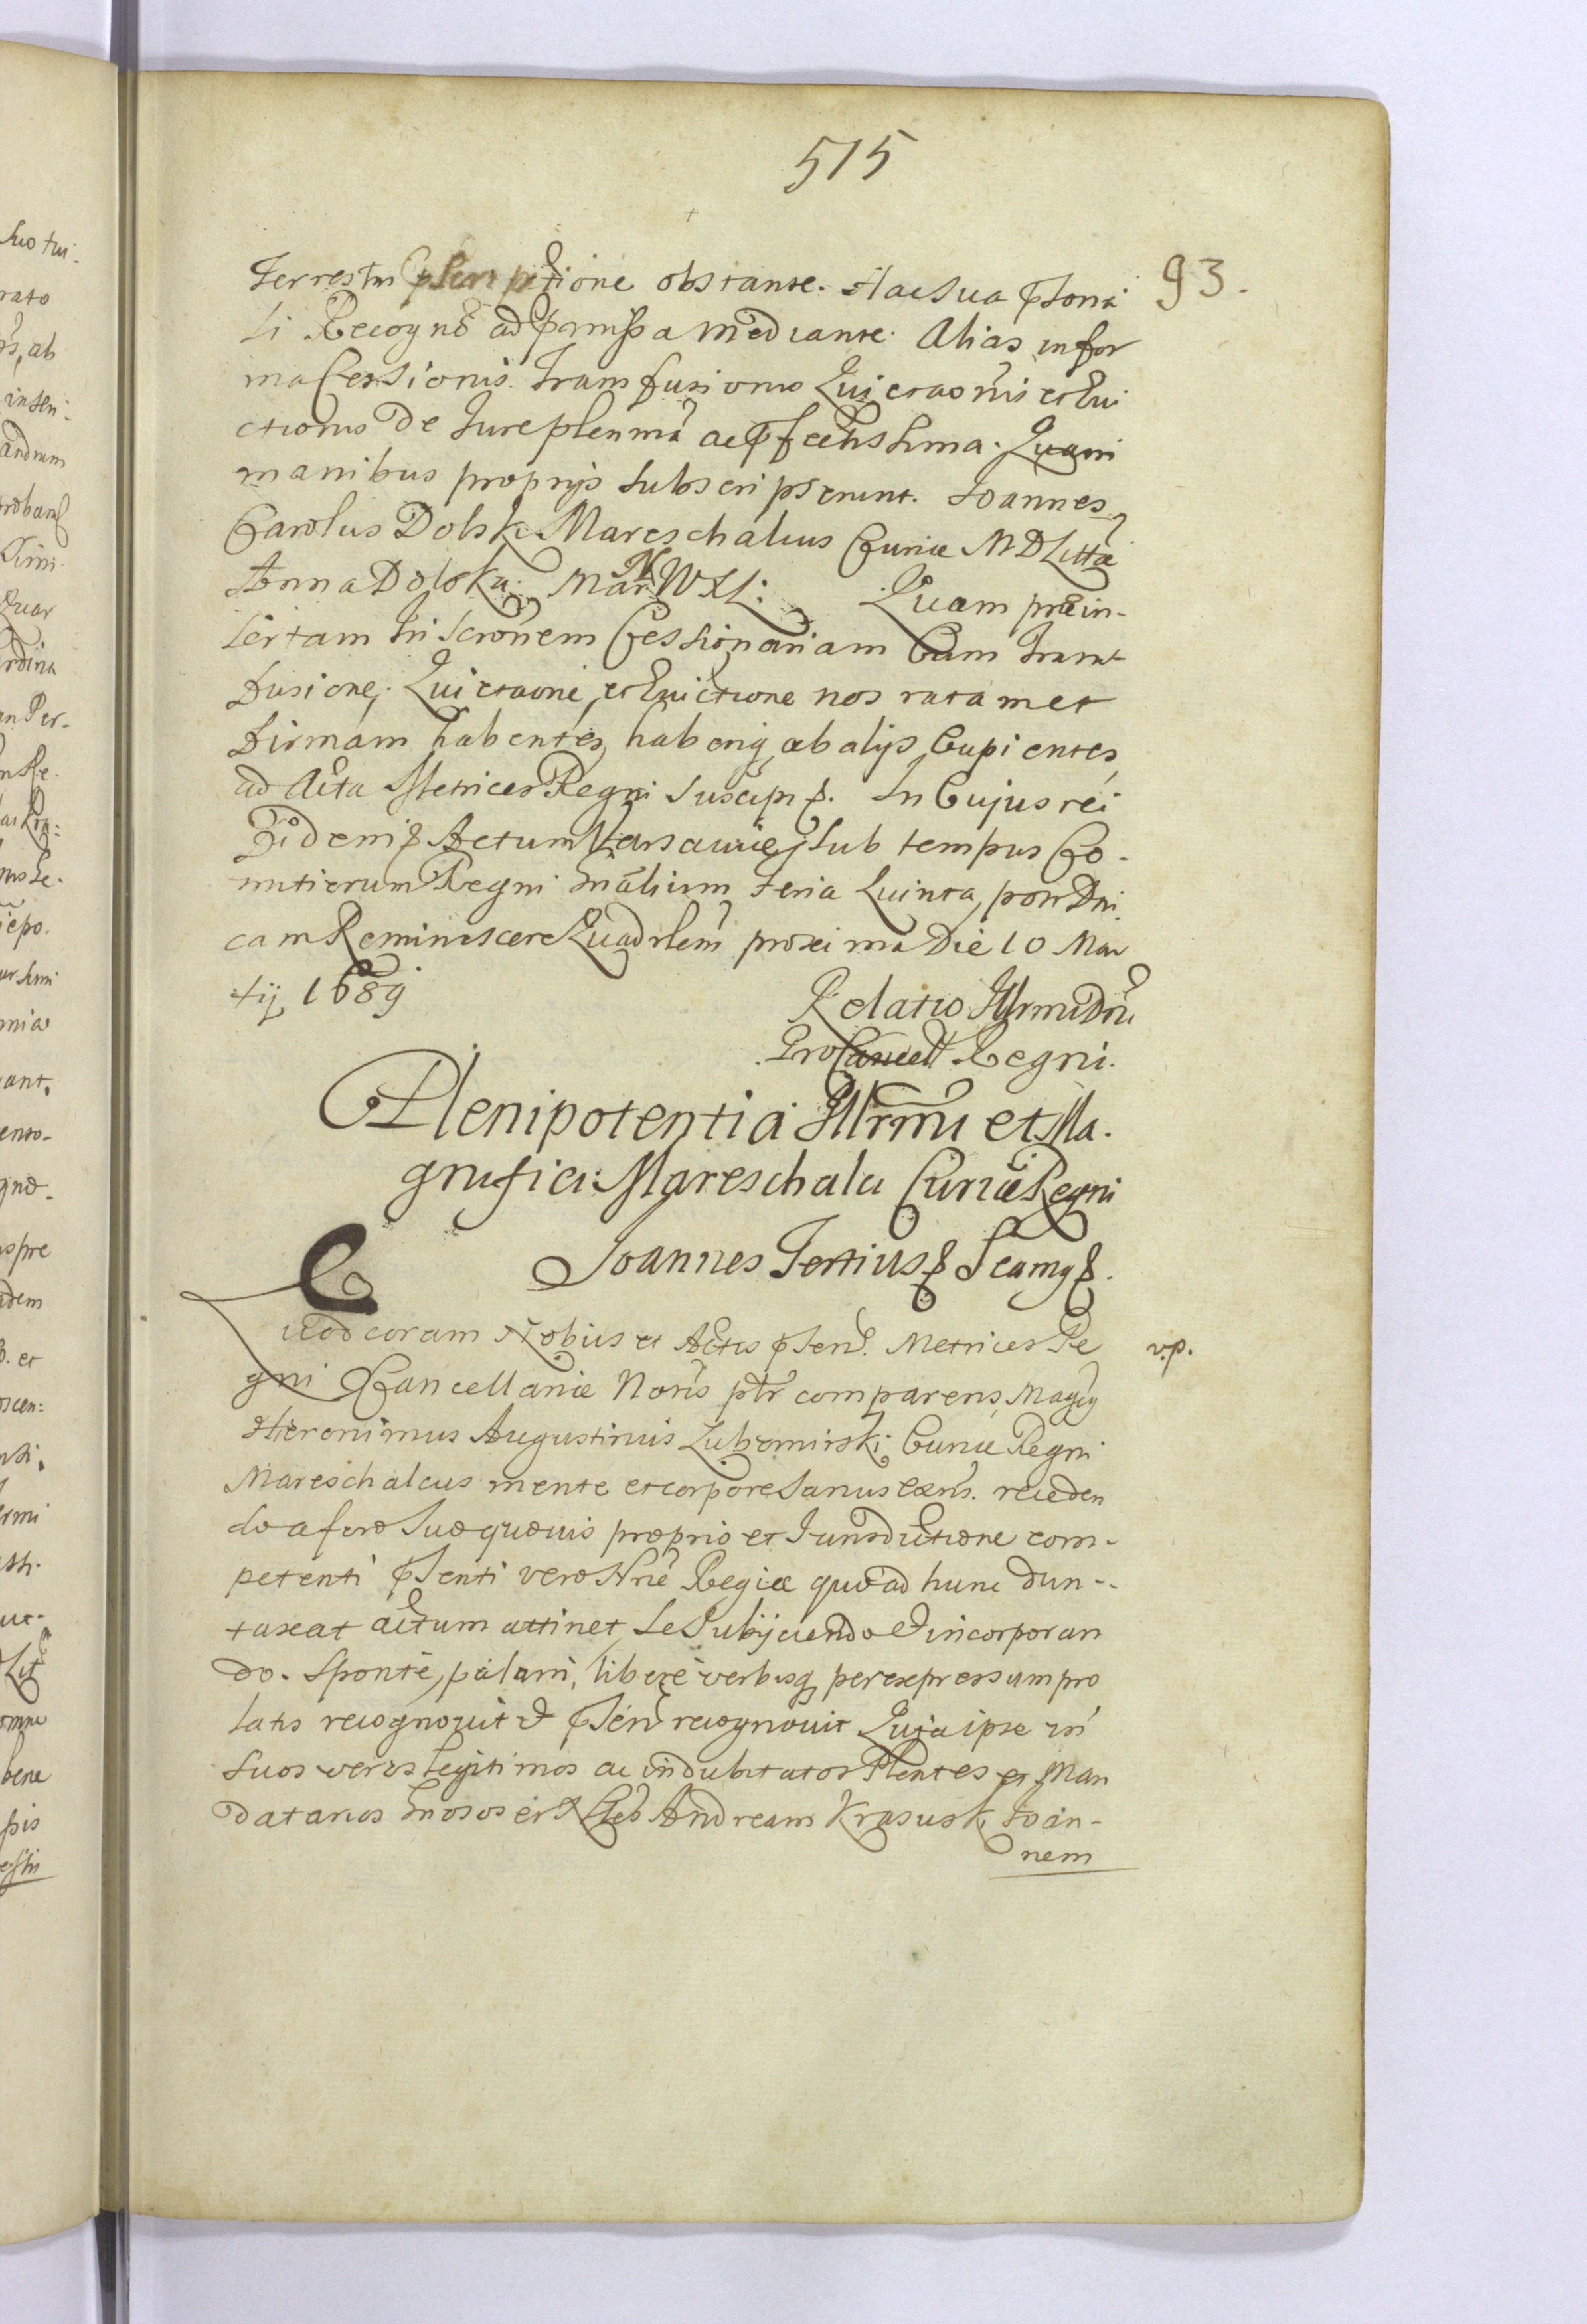 515
93.
Terrestri obstante. Hac sua
si Recogne ad pmissa mediante. Alias in for
ma Cessionis. Transfusionis Quietaõnis et Evi
ctionis de Jure plenmã ac pfectissima. Quam
manibus proprijs subscripserunt. Joannes
Carolus Dolski Mareschalcus Curiæ M D Litta
Anna Dolska. Mar: N W X L: Quam præin-
sertam Inscrõnem Cessionariam Cum Trans
fusione, Quietaone, et Evictione nos ratam et
firmam habentes, haberiq ab alijs Cupientes,
ad Acta Metrices Regni suscip. In Cujus rei
Fidem Actum Varsaviæ sub tempus Co-
mitiorum Regni Gnãlium Feria Quinta, post Dni
cam Reminiscere Quadrlem proxima Die 10 Mar
tij 1689
Relatio Illrmi Dni
ProCancell Regni.
Plenipotentia Illrmi et Ma.
gnifici Mareschalci Curiæ Regni
Joannes Tertius
Quod coram Nobis et Actis psen. Metrices Re
v.p.
gni Cancellariæ Noris ptr comparens, Magcg
Hieronimus Augustinus Lubomirski Curiæ Regni
Mareschalcus mente et corpore sanus exns. receden
do a foro suo quovis proprio et Jurisdictione com-
petenti psenti vero Nræ Regiæ quo ad hunc dun-
taxat actum attinet, se subijciendo et incorporan
do. Sponte, palam, libere verbisq per expressum pro
latis recognovit et psen recognovit Quia ipse in
suos veros legitimos ac indubitatos Plentes et Man
datarios Gnosos et Andream Krasuski Joan-
nem